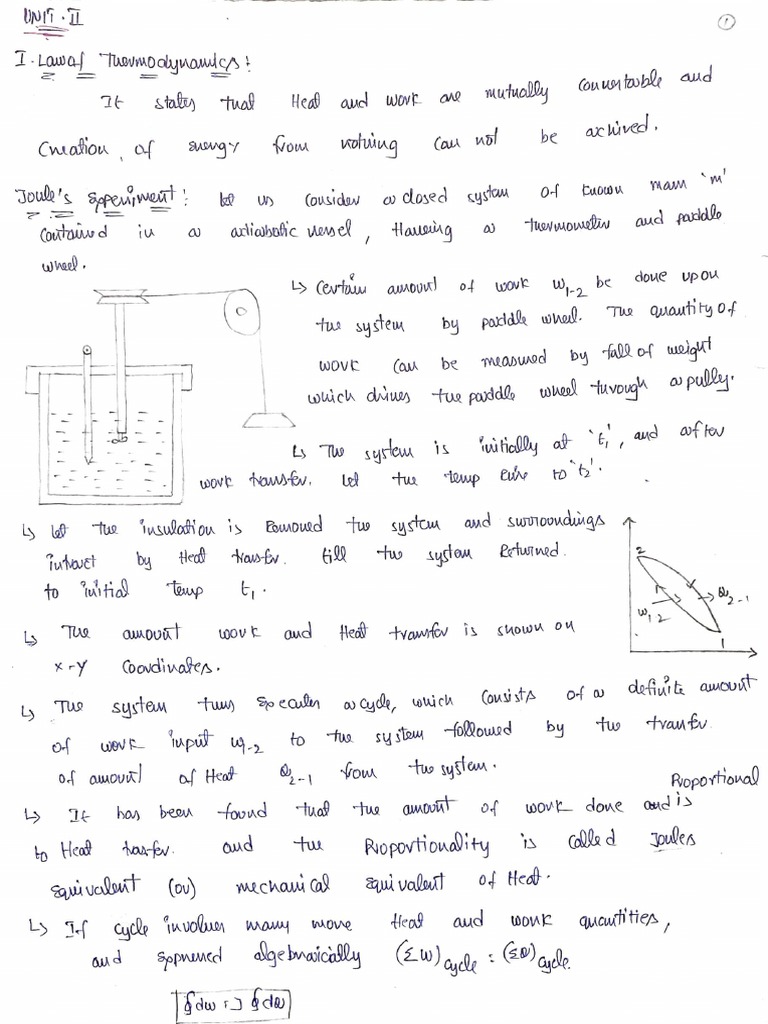 UNIT-II
1
I. Law of Thermodynamics:
It states that Heat and work are mutually convertable and
Creation, of energy from nothing can not be achived.
Joule's Experiment: let us consider a closed system of known mass 'm'
contained in a adiabatic vessel, Having a thermometer and paddle
wheel.
↳ Certain amount of work W1-2 be done upon
the system by paddle wheel. The quantity of
work can be measured by fall of weight
which drives the paddle wheel through a pully.
↳ The system is initially at 't1', and after
work transfer. let the temp rise to 't2'.
↳ let the insulation is Removed the system and surroundings
intract by Heat transfer. till the system Returned.
to initial temp t1.
2
W1-2
Q2-1
1
↳ The amount work and Heat transfer is shown on
x-y coordinates.
↳ The system thus executes a cycle, which consists of a definite amount
of work input W1-2 to the system followed by the transfer
of amount of Heat Q2-1 from the system.
↳ It has been found that the amount of work done and is Proportional
to Heat transfer. and the Proportionality is called Joules
equivalent (or) mechanical equivalent of Heat.
↳ If cycle involves many more Heat and work quantities,
and expressed algebraically (ΣW)cycle = (ΣQ)cycle.
∮dw = J ∮dQ